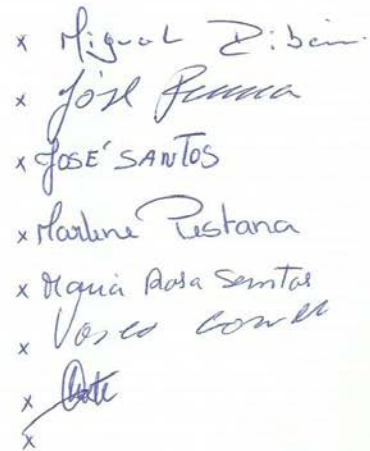 x Miguel Ribeiro
x José
x JOSÉ SANTOS
x Marlene Pestana
x Maria Rosa Santos
x Vasco
x
x